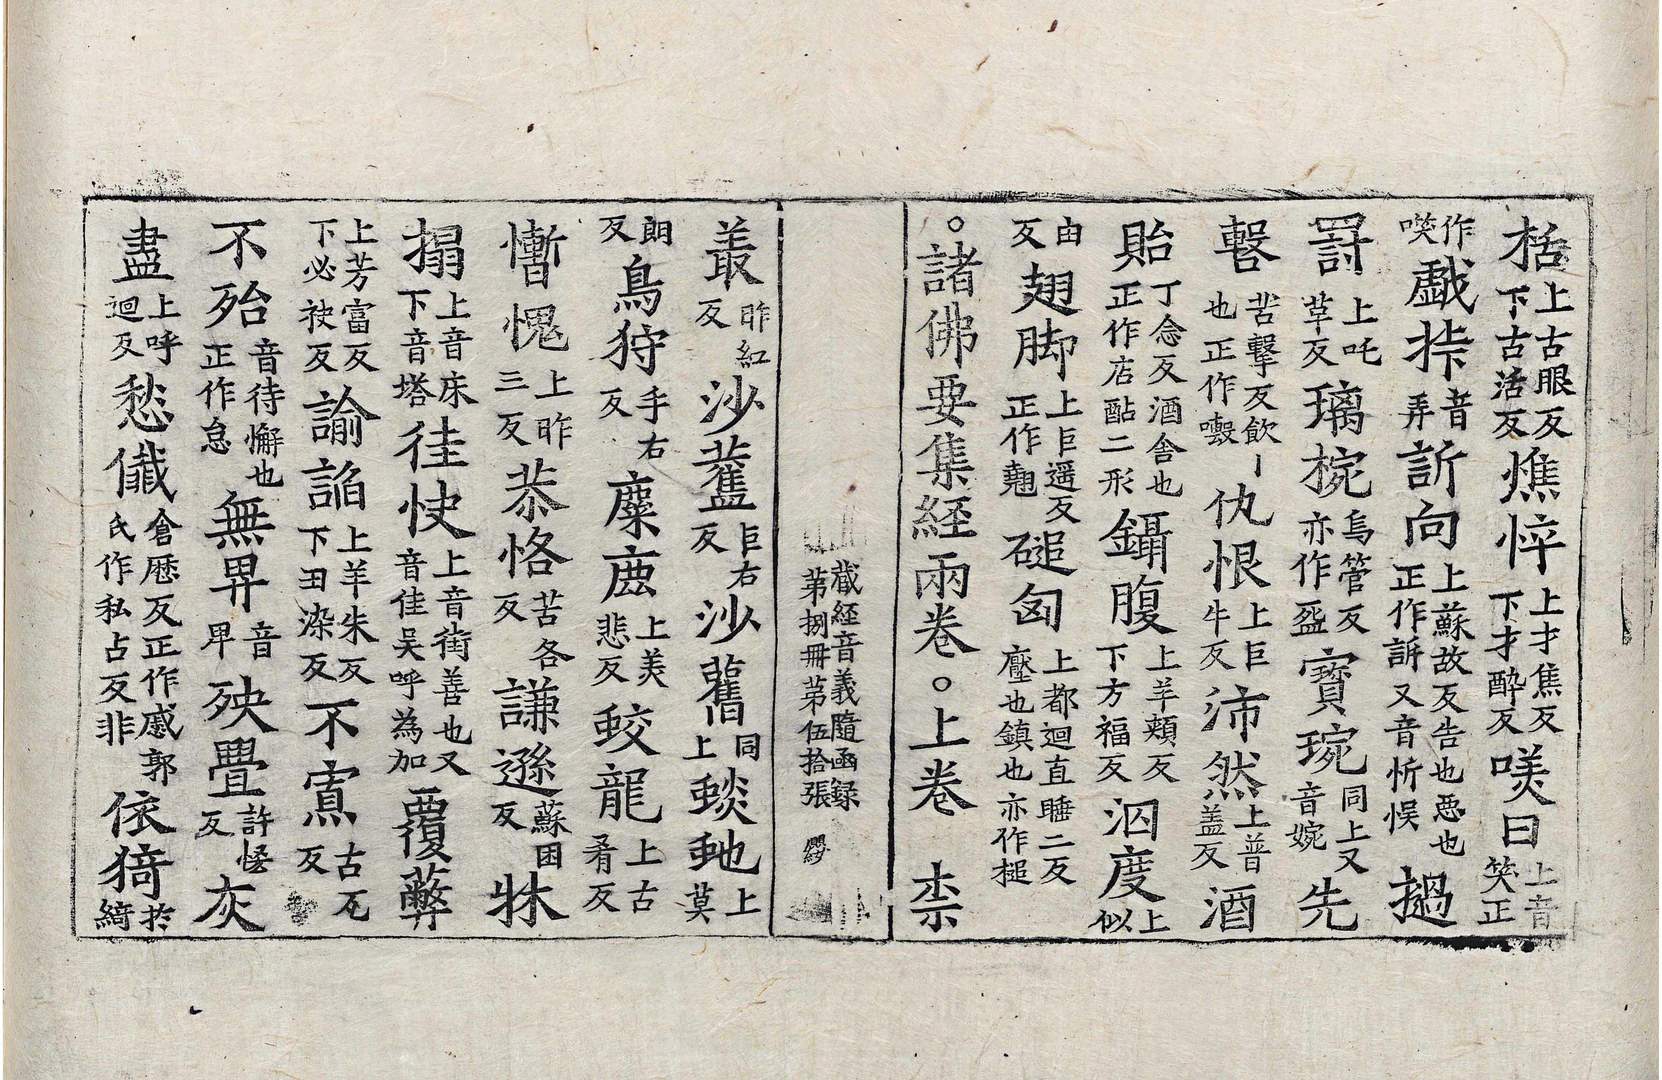 栝上古眼反下古活反燋悴上才焦反下才醉反㗛曰上音笑正
作㗛戱挊音弄訴向上蘇故反告也悪也正作訴又音忻悮撾
罸上吒草反璃椀烏管反亦作盌寶琬同上又音婉先
毄苦擊反飲丨也正作嗀仇恨上巨牛反沛然上普盖反酒
貼丁念反酒舎也正作店㸃二形鑷腹上羊頰反下方福反泅度上似
由反翅脚上巨遥反正作翹磓匈上都迴直睡二反壓也鎮也亦作搥
○諸佛要集経兩卷○上卷 柰
蔵経音義隨函録第捌冊第伍拾張
叢昨紅反沙䕾巨右反沙舊同上蝮虵上莫
朗反鳥狩手右反麋鹿上美悲反蛟龍上古肴反
慚愧上昨三反恭恪苦各反謙遜蘇困反牀
搨上音床下音塔徍快上音街善也又音佳吴呼為加覆蔽
上芳富反下必袂反諭諂上羊朱反下丑染反不𡩋古瓦反
不殆音待懈也正作怠無畀音畢殃舋許愘反灰
盡上呼迴反愁儎倉歴反正作慼郭氏作私占反非依猗於綺